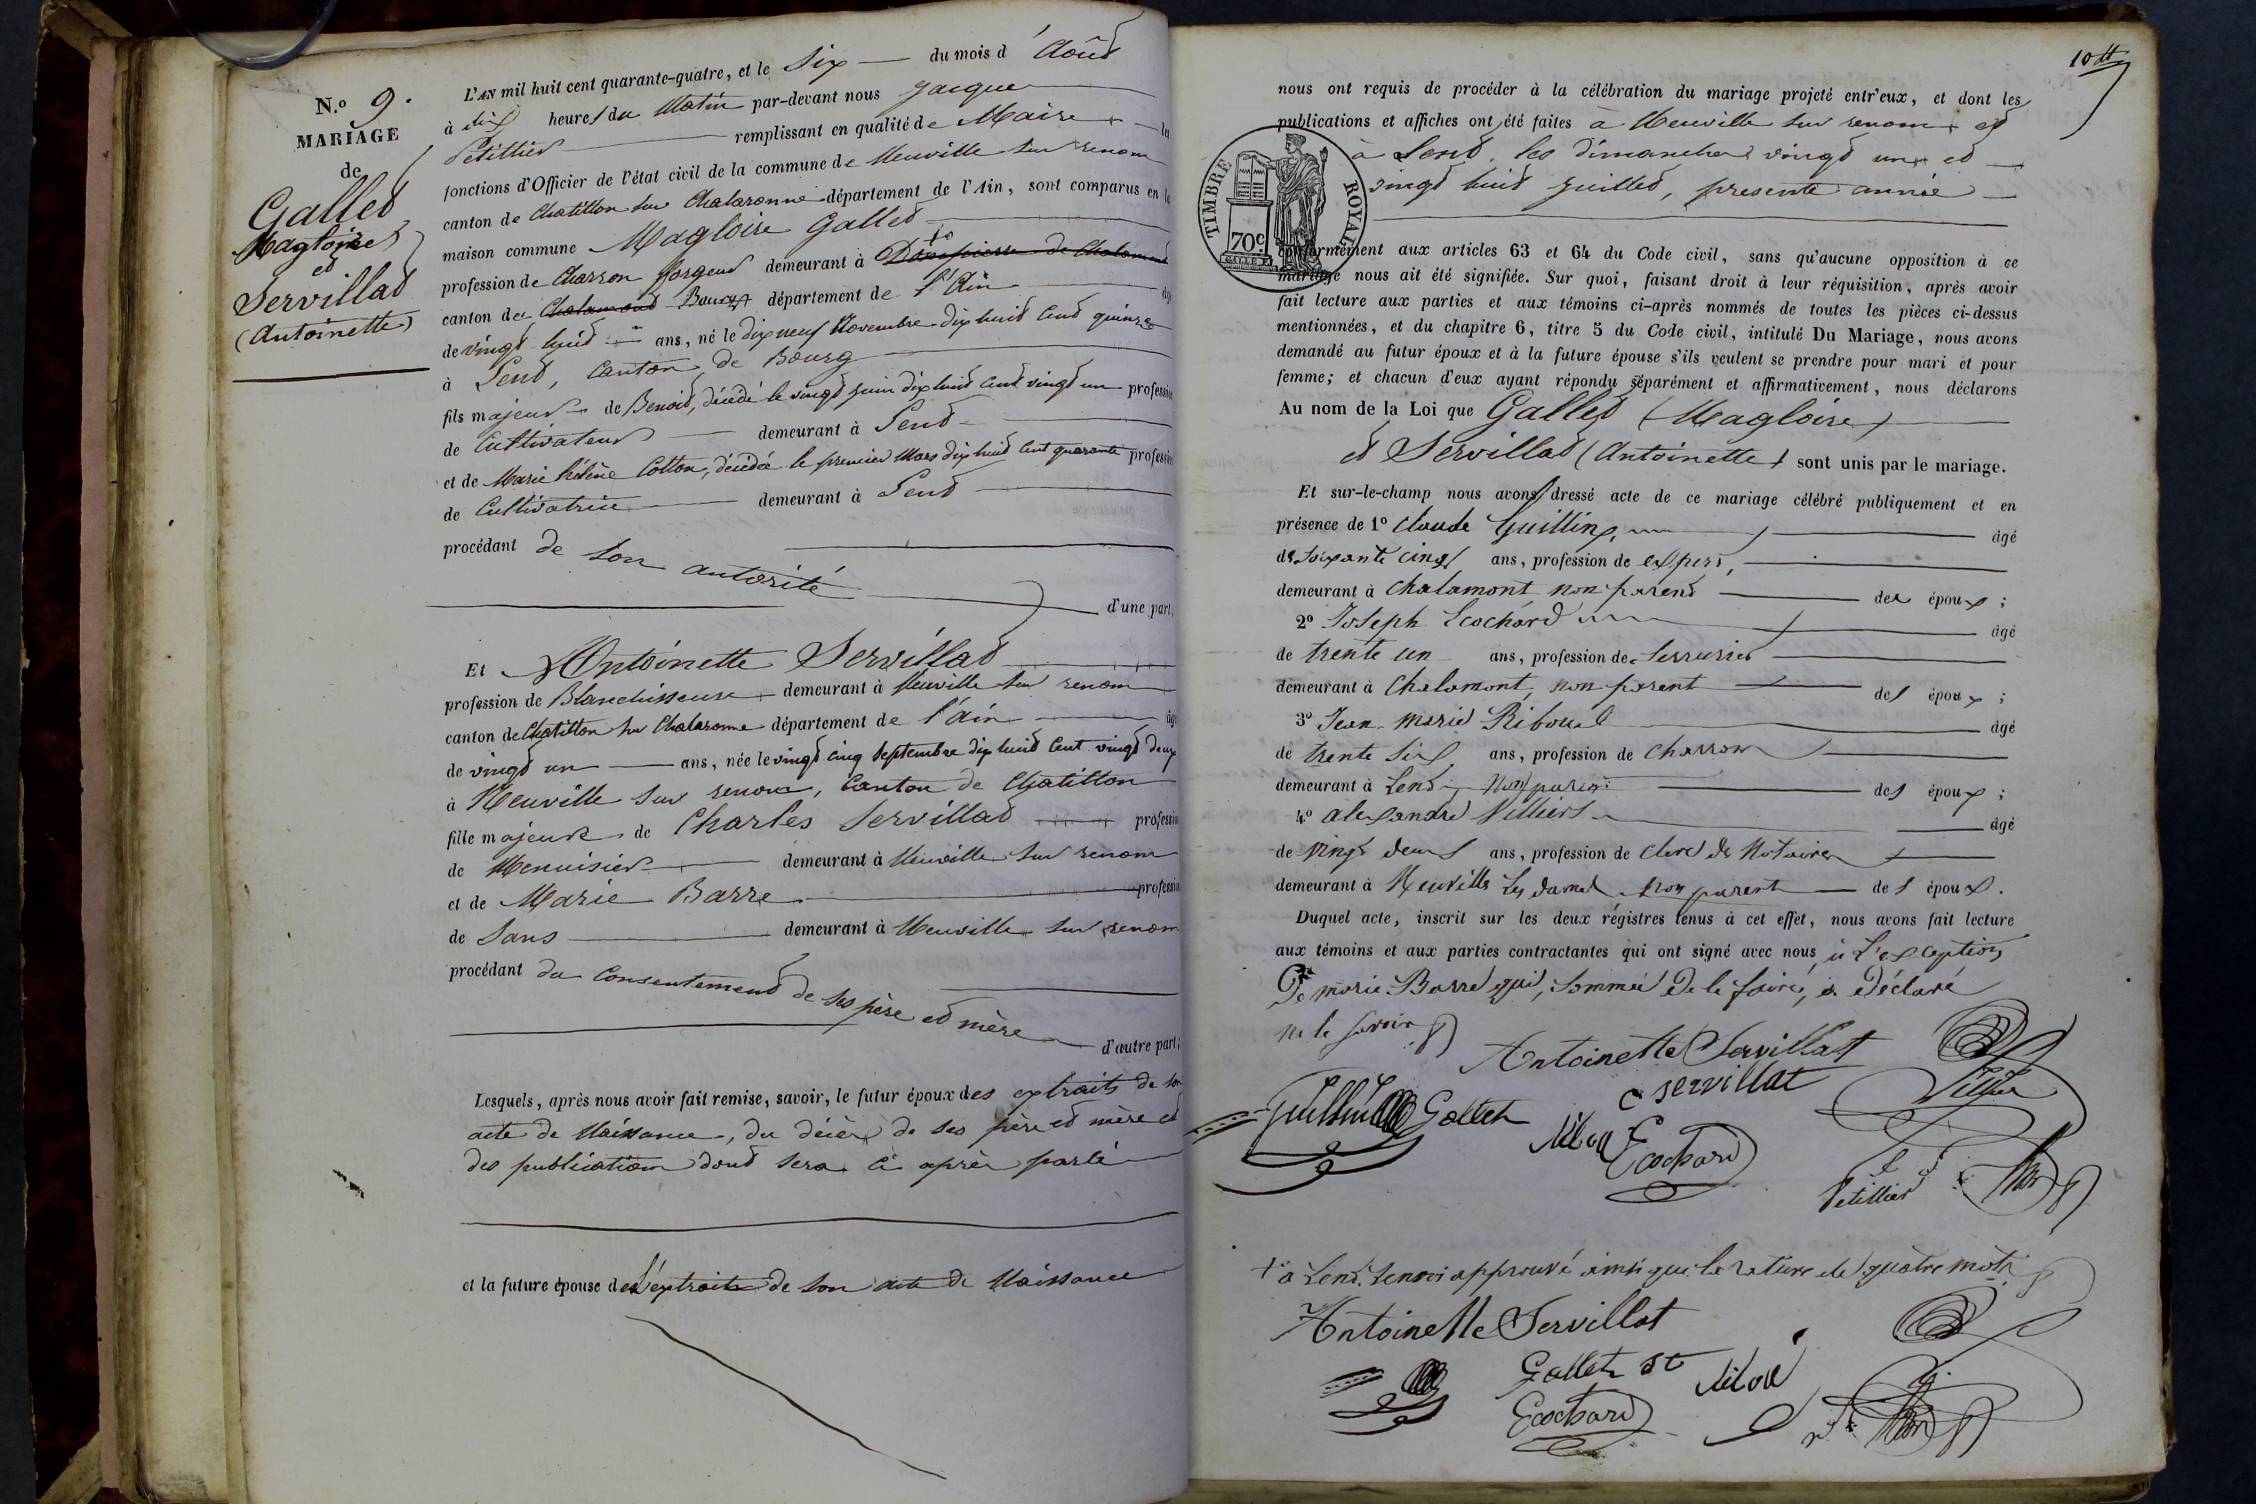 N.o 9.
MARIAGE
de
Gallet
Magloire
et
Servillat
(Antoinette)
L'AN mil huit cent quarante-quatre, et le Six du mois d'Août
à dix heures du Matin par-devant nous Jacque
Petillier remplissant en qualité de Maire les
fonctions d'Officier de l'état civil de la commune de Neuville sur renom
canton de Chatillon sur Chalaronne département de l'Ain, sont comparus en la
maison commune Magloire Gallet
profession de Charron forgeur demeurant à Dompierre de Chalamont
canton de Chalamont Bourg département de l'Ain âgé
de vingt huit ans, né le dix neuf Novembre dix huit Cent quinze
à Lent, Canton de Bourg
fils majeur de Benoit, décédé le vingt juin dix huit Cent vingt un profession
de Cultivateur demeurant à Lent
et de Marie hélène Cotton, décédée le premier Mars dix huit Cent quarante profession
de Cultivatrice demeurant à Lent
procédant de son autorité
d'une part;
Et Antoinette Servillat
profession de Blanchisseuse demeurant à Neuville sur renom
canton de Chatillon sur Chalaronne département de l'Ain âgé
de vingt un ans, née le vingt cinq Septembre dix huit Cent vingt deux
à Neuville sur renom, Canton de Chatillon
fille majeure de Charles Servillat profession
de Menuisier demeurant à Neuville sur renom
et de Marie Barre profession
de Sans demeurant à Neuville sur renom
procédant du Consentement de ses père et mère
d'autre part;
Lesquels, après nous avoir fait remise, savoir, le futur époux des extraits de son
acte de Naissance, du décès de ses père et mère et
des publications dont sera ci après parlé
et la future épouse de l'extrait de son acte de Naissance
10
nous ont requis de procéder à la célébration du mariage projeté entr'eux, et dont les
publications et affiches ont été faites à Neuville sur renom et
à Lent, les dimanches vingt un et
vingt huit juillet, presente année
TIMBRE ROYAL
70c
conformément aux articles 63 et 64 du Code civil, sans qu'aucune opposition à ce
mariage nous ait été signifiée. Sur quoi, faisant droit à leur réquisition, après avoir
fait lecture aux parties et aux témoins ci-après nommés de toutes les pièces ci-dessus
mentionnées, et du chapitre 6, titre 5 du Code civil, intitulé Du Mariage, nous avons
demandé au futur époux et à la future épouse s'ils veulent se prendre pour mari et pour
femme; et chacun d'eux ayant répondu séparément et affirmativement, nous déclarons
Au nom de la Loi que Gallet (Magloire)
et Servillat (Antoinette) sont unis par le mariage.
Et sur-le-champ nous avons dressé acte de ce mariage célébré publiquement et en
présence de 1o Claude Guilling, âgé
de Soixante cinq ans, profession de expert,
demeurant à Chalamont non parent des époux;
2o Joseph Ecochard âgé
de trente un ans, profession de Serrurier
demeurant à Chalamont, non parent des époux;
3o Jean Marie Riboud âgé
de trente Six ans, profession de Charron
demeurant à Lent non parent des époux;
4o alexandre Villiers âgé
de vingt deux ans, profession de Clerc de Notaire
demeurant à Neuville Les dames non parent des époux.
Duquel acte, inscrit sur les deux régistres tenus à cet effet, nous avons fait lecture
aux témoins et aux parties contractantes qui ont signé avec nous, à L'exception
De marie Barre qui, Sommée De le faire, a Déclaré
ne le Savoir
Antoinette Servillat
C servillat
Gallet
Ecochard
Petillier
+ à Lent. renvoi approuvé ainsi que la rature de quatre mots
Antoinette Servillat
Gallet
Ecochard